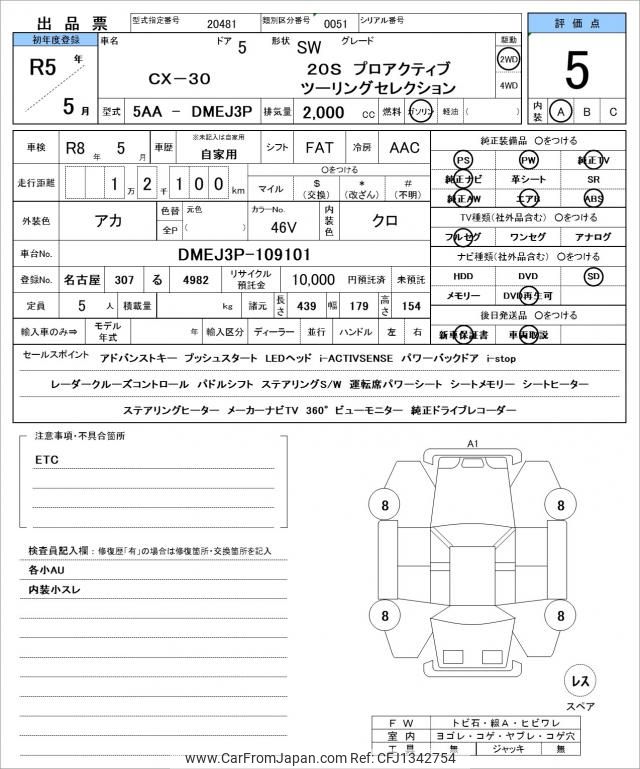 出 品 票 型式指定番号 20481 類別区分番号 0051 シリアル番号 評 価 点
初年度登録 車名 ドア 5 形状 SW グレード 駆動
R5 年 CX-30 20S プロアクティブ 2WD 5
ツーリングセレクション 4WD
5 月 型式 5AA - DMEJ3P 排気量 2,000 cc 燃料 ガソリン 軽油 ( ) 内装 A B C
車検 R8 年 5 月 車歴 ※未記入は自家用 自家用 シフト FAT 冷房 AAC 純正装備品 〇をつける
PS PW 純正TV
走行距離 1 万 2 千 1 0 0 km 〇をつける 純正ナビ 革シート SR
マイル $ (交換) * (改ざん) # (不明) 純正AW エアB ABS
外装色 アカ 色替 元色 カラーNo. 内装色 クロ TV種類(社外品含む) 〇をつける
全P ( ) 46V フルセグ ワンセグ アナログ
車台No. DMEJ3P-109101 ナビ種類(社外品含む) 〇をつける
登録No. 名古屋 307 る 4982 リサイクル預託金 10,000 円預託済 未預託 HDD DVD SD
定員 5 人 積載量 kg 諸元 長さ 439 幅 179 高さ 154 メモリー DVD再生可
後日発送品 〇をつける
輸入車のみ⇒ モデル年式 年 輸入区分 ディーラー 並行 ハンドル 左 右 新車保証書 車両取説
セールスポイント アドバンストキー プッシュスタート LEDヘッド i-ACTIVSENSE パワーバックドア i-stop
レーダークルーズコントロール パドルシフト ステアリングS/W 運転席パワーシート シートメモリー シートヒーター
ステアリングヒーター メーカーナビTV 360°ビューモニター 純正ドライブレコーダー
注意事項・不具合箇所
ETC
検査員記入欄：修復歴「有」の場合は修復箇所・交換箇所を記入
各小AU
内装小スレ
A1
8 8
8 8
レス
スペア
F W トビ石・線A・ヒビワレ
室 内 ヨゴレ・コゲ・ヤブレ・コゲ穴
工 具 無 ジャッキ 無
www.CarFromJapan.com Ref: CFJ1342754